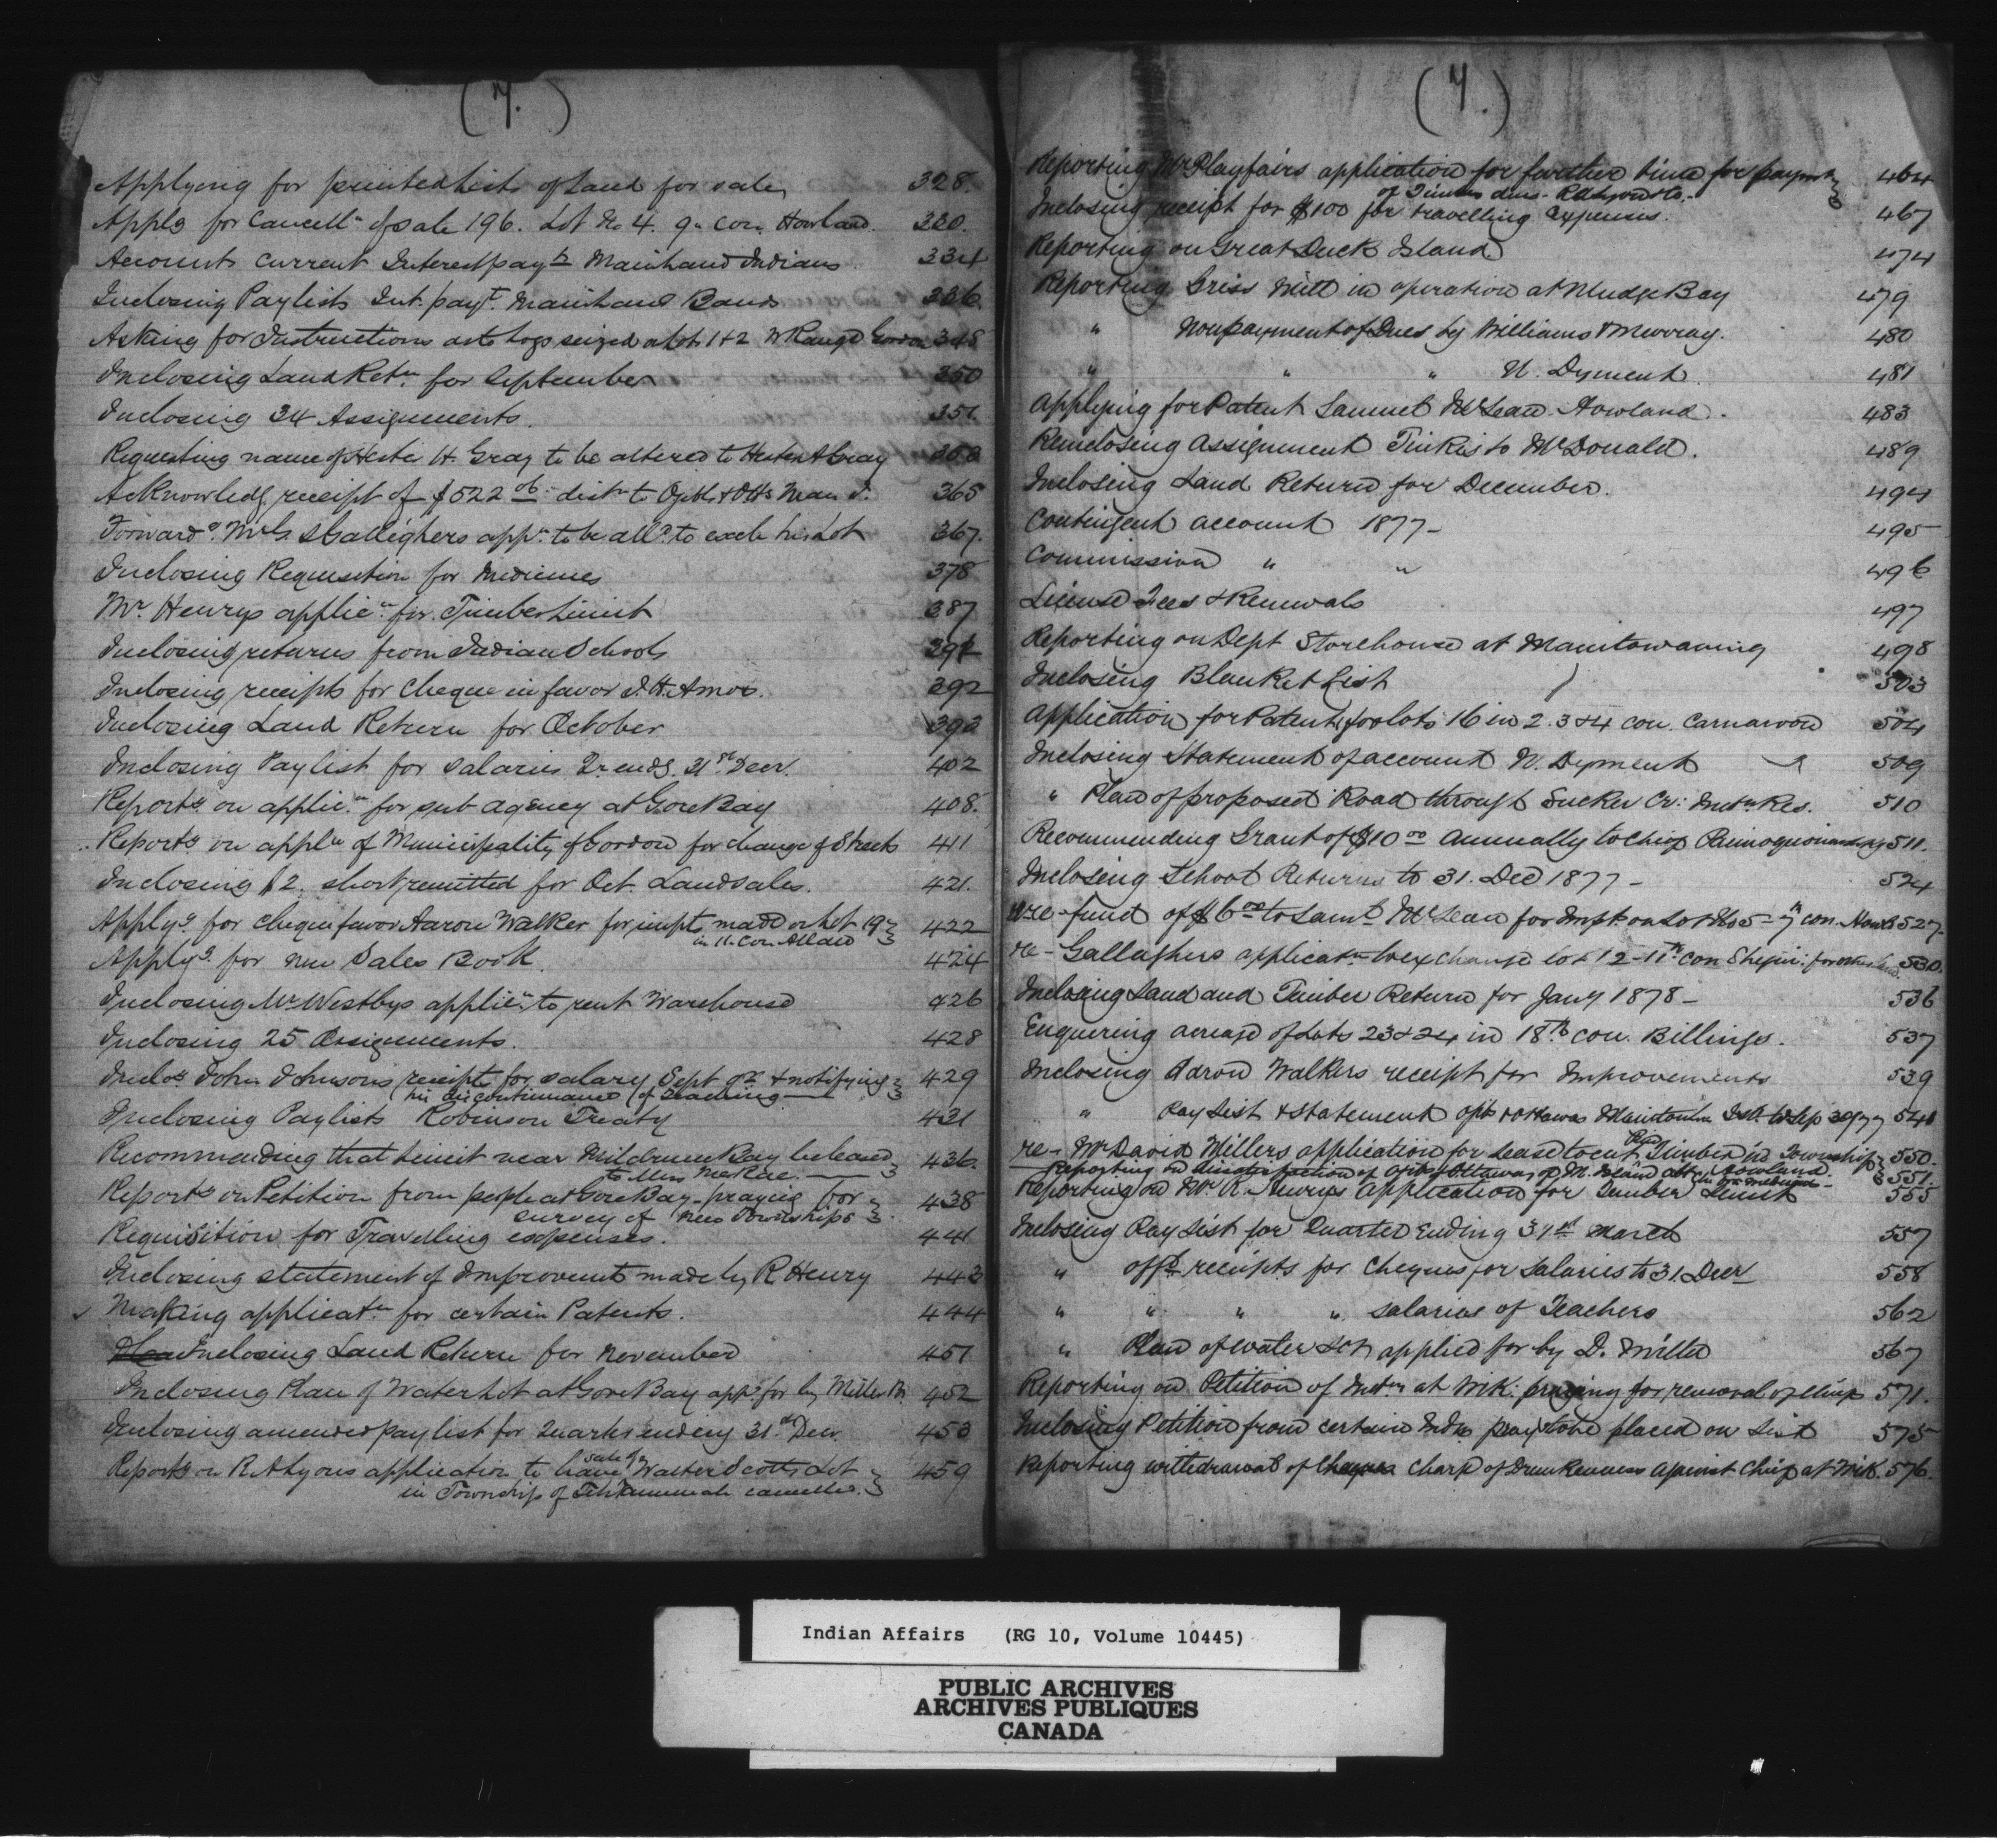 ( 7. )
Applying for printed Lists of Land for sale, 328.
Applg for Cancell.n of Sale 196. Lot No 4. 9. con, Howland. 330.
Account Current Interest payts Mainland Indians 334
Inclosing Paylists Int. payt. Mainland Bands 336.
Asking for Instructions as to logs seized at Lot 1+2 W Range Gordon 348
Inclosing Land Retn. for September 350
Inclosing 34 Assignments. 351.
Requesting name of Hester H. Gray to be altered to 363
Acknowledg receipt of $522 distn to & Otts Man I. 365
Forwardg. Gallighers appn. to be alld. to exch his Lot 367.
Inclosing Requisition for Medicines 378
Mr. Henrys applicn. for Timber Limit 387
Inclosing returns from Indian Schools 391
Inclosing receipts for Cheque in favor J. H. Amos. 392
Inclosing Land Return for October 393
Inclosing Paylist for salaries Qr. endg. 31st. Decr. 402
Reportg. on applicn. for sub agency at Gore Bay 408.
Reportg. on appln of Municipality of Gordon for change of Streets 411
Inclosing $2. short remitted for Oct. Land sales. 421.
Applyg. for cheque favor Aaron Walker for impts made on Lot 19 422
in 11. Con Allan
Applyg. for new Sales Book. 424
Inclosing Mr Westbys applicn. to rent Warehouse 426
Inclosing 25 Assignments. 428
Inclosg John Johnsons receipts for salary Sept qr + notifying 429
his discontinuance of Teaching —
Inclosing Paylists Robinson Treaty 431
Recommending that Limit near Mildrum Bay be leased 436.
to Miss McRae. —
Reportg on Petition from people at Gore Bay praying for 438
survey of New Townships
Requisition for Travelling expenses. 441
Inclosing statement of Improvements made by R Henry 443
Making applicatn. for certain Patents. 444
Inclosing Land Return for November 451
Inclosing Plan of Water Lot at Gore Bay appd. for by Miller 452
Inclosing amended pay list for Quarter ending 31st. Decr. 453
Reportg on R. A Lyons application to have sale of Walter Scotts Lot 459
in Township of Tehkummah cancelled.
( 7. )
Reporting Mr Playfairs application for further time for paymt 464
of Timber dues
Inclosing receipt for $100 for travelling expenses. 467
Reporting on Great Duck Island 474
Reporting Griss Mill in operation at Mudge Bay 479
" Nonpayment of Dues by Williams & Murray. 480
" " " N. Dyment. 481
Applying for Patent Samuel McLean. Howland. 483
Reinclosing Assignment Tinkis to McDonald. 489
Inclosing Land Return for December. 494
Contingent Account 1877 - 495
Commission " " 496
License Fees & Renewals 497
Reporting on Dept Storehouse at Manitowaning 498
Inclosing Blanket List 503
Application for Patents for lots 16 in 2. 3 & 4 con. Carnarvon 504
Inclosing Statement of account N. Dyment 509
" Plan of proposed Road through Sucker Cr: Indn Res. 510
Recommending Grant of $10 00 annually to Chief 511.
Inclosing School Returns to 31. Dec 1877 - 524
re-fund of $6 00 to Saml McLean for Impt on Lot No 5 - 7th con. Howld 527.
re - Gallaghers applicatn to exchange lot 12 - 11th con Shegui: for other land. 530.
Inclosing Land and Timber Return for Jany 1878 - 536
Enquiring acreage of Lots 23 & 24 in 18th con. Billings. 537
Inclosing Aaron Walkers receipt for Improvements 539
" Pay List & statement & Ottawas Manitoulin Isd. to Sep 30/77 541
re - Mr David Millers application for lease to cut Timber in Township 550.
Howland.
Reporting on dissatisfaction of Ottawas of M. Island 551.
Reporting on Mr R. Henrys application for Timber Limit 555
Inclosing Pay List for Quarter Ending 31st March 557
" receipts for Cheques for Salaries to 31 Decr 558
" " " " salaries of Teachers 562
" Plan of Water Lot applied for by D. Miller 567
Reporting on Petition of Indns at Wik: praying for removal of Chief 571.
Inclosing Petition from certain Indns prayg to be placed on List 575
Reporting withdrawal of charge of Drunkenness against Chief at Wik. 576.
Indian Affairs (RG 10, Volume 10445)
PUBLIC ARCHIVES
ARCHIVES PUBLIQUES
CANADA